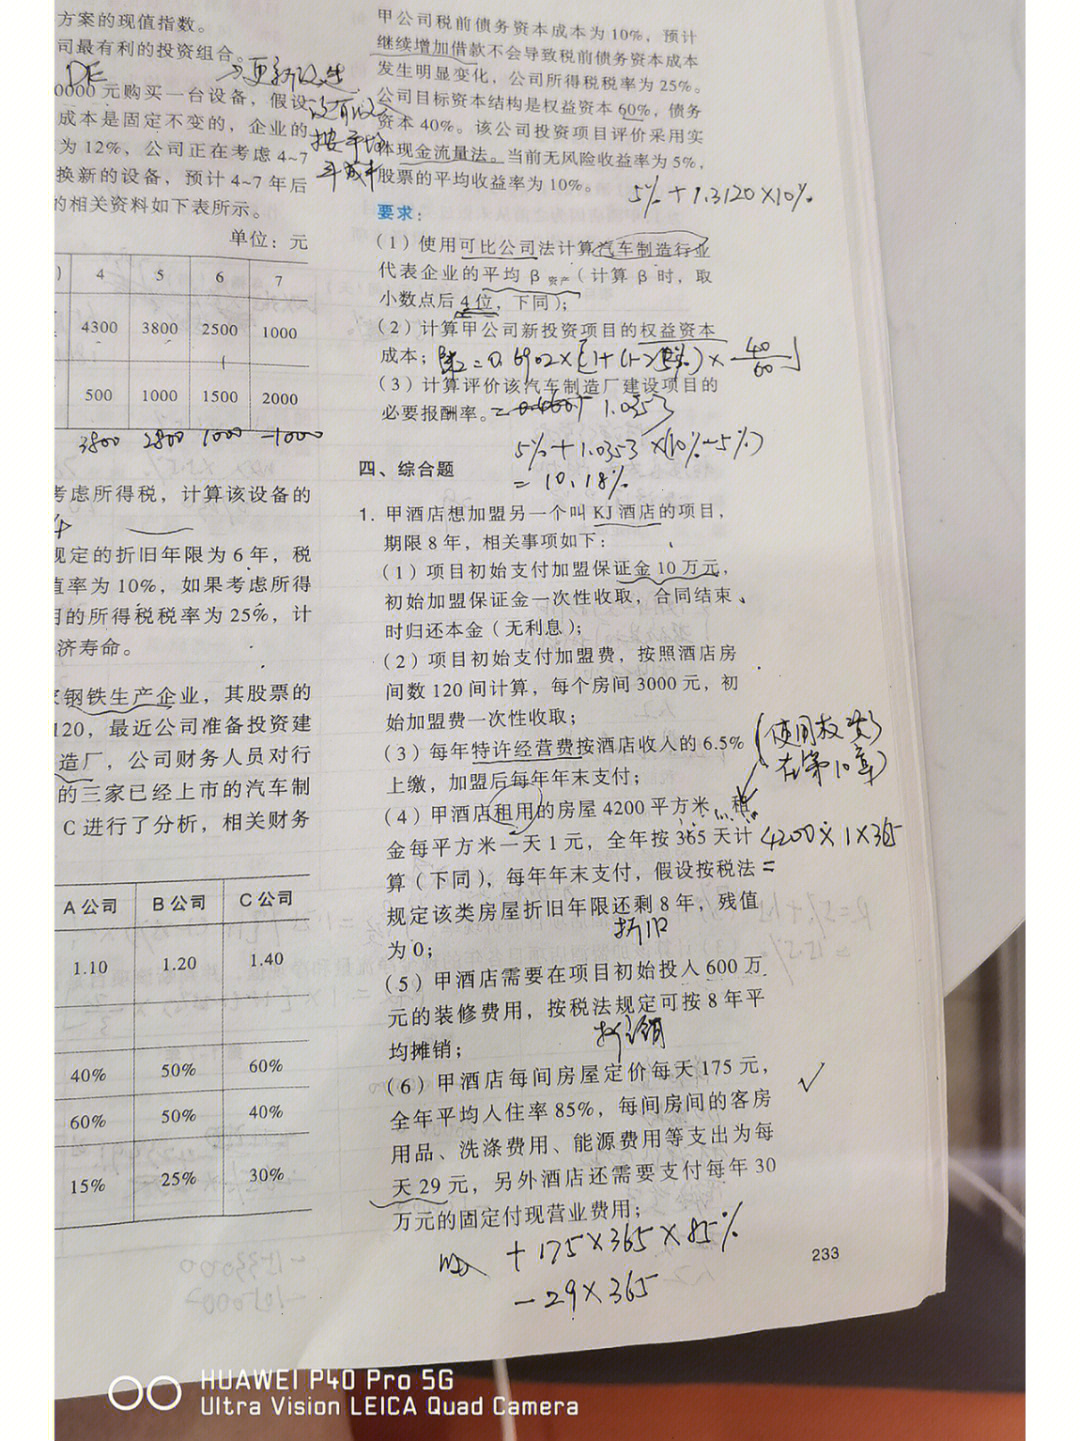 方案的现值指数。
司最有利的投资组合。
DE
→更新改造
0000 元购买一台设备，假设
没有收入
成本是固定不变的，企业的
按平均
为 12%，公司正在考虑 4~7
年成本
换新的设备，预计 4~7 年后
的相关资料如下表所示。
单位：元
4 5 6 7
4300 3800 2500 1000
500 1000 1500 2000
3800 2800 1000 -1000
考虑所得税，计算该设备的
规定的折旧年限为 6 年，税
直率为 10%，如果考虑所得
用的所得税税率为 25%，计
济寿命。
钢铁生产企业，其股票的
120，最近公司准备投资建
造厂，公司财务人员对行
的三家已经上市的汽车制
C 进行了分析，相关财务
A 公司 B 公司 C 公司
1.10 1.20 1.40
40% 50% 60%
60% 50% 40%
15% 25% 30%
甲公司税前债务资本成本为 10%，预计
继续增加借款不会导致税前债务资本成本
发生明显变化，公司所得税税率为 25%。
公司目标资本结构是权益资本 60%，债务
资本 40%。该公司投资项目评价采用实
体现金流量法。当前无风险收益率为 5%，
股票的平均收益率为 10%。
5%+1.3120×10%
要求：
（1）使用可比公司法计算汽车制造行业
代表企业的平均 β资产（计算 β 时，取
小数点后 4 位，下同）；
（2）计算甲公司新投资项目的权益资本
成本；
=0.6902×[1+(1-25%)×40/60]
（3）计算评价该汽车制造厂建设项目的
必要报酬率。
= 1.0353
5%+1.0353×(10%-5%)
= 10.18%
四、综合题
1. 甲酒店想加盟另一个叫 KJ 酒店的项目，
期限 8 年，相关事项如下：
（1）项目初始支付加盟保证金 10 万元，
初始加盟保证金一次性收取，合同结束
时归还本金（无利息）；
（2）项目初始支付加盟费，按照酒店房
间数 120 间计算，每个房间 3000 元，初
始加盟费一次性收取；
（3）每年特许经营费按酒店收入的 6.5%
上缴，加盟后每年年末支付；
(使用权资
在第10章)
（4）甲酒店租用的房屋 4200 平方米，租
金每平方米一天 1 元，全年按 365 天计
4200×1×365
算（下同），每年年末支付，假设按税法
=
规定该类房屋折旧年限还剩 8 年，残值
折旧
为 0；
（5）甲酒店需要在项目初始投入 600 万
元的装修费用，按税法规定可按 8 年平
折销
均摊销；
（6）甲酒店每间房屋定价每天 175 元，
全年平均入住率 85%，每间房间的客房
用品、洗涤费用、能源费用等支出为每
天 29 元，另外酒店还需要支付每年 30
万元的固定付现营业费用；
+175×365×85%
-29×365
233
HUAWEI P40 Pro 5G
Ultra Vision LEICA Quad Camera